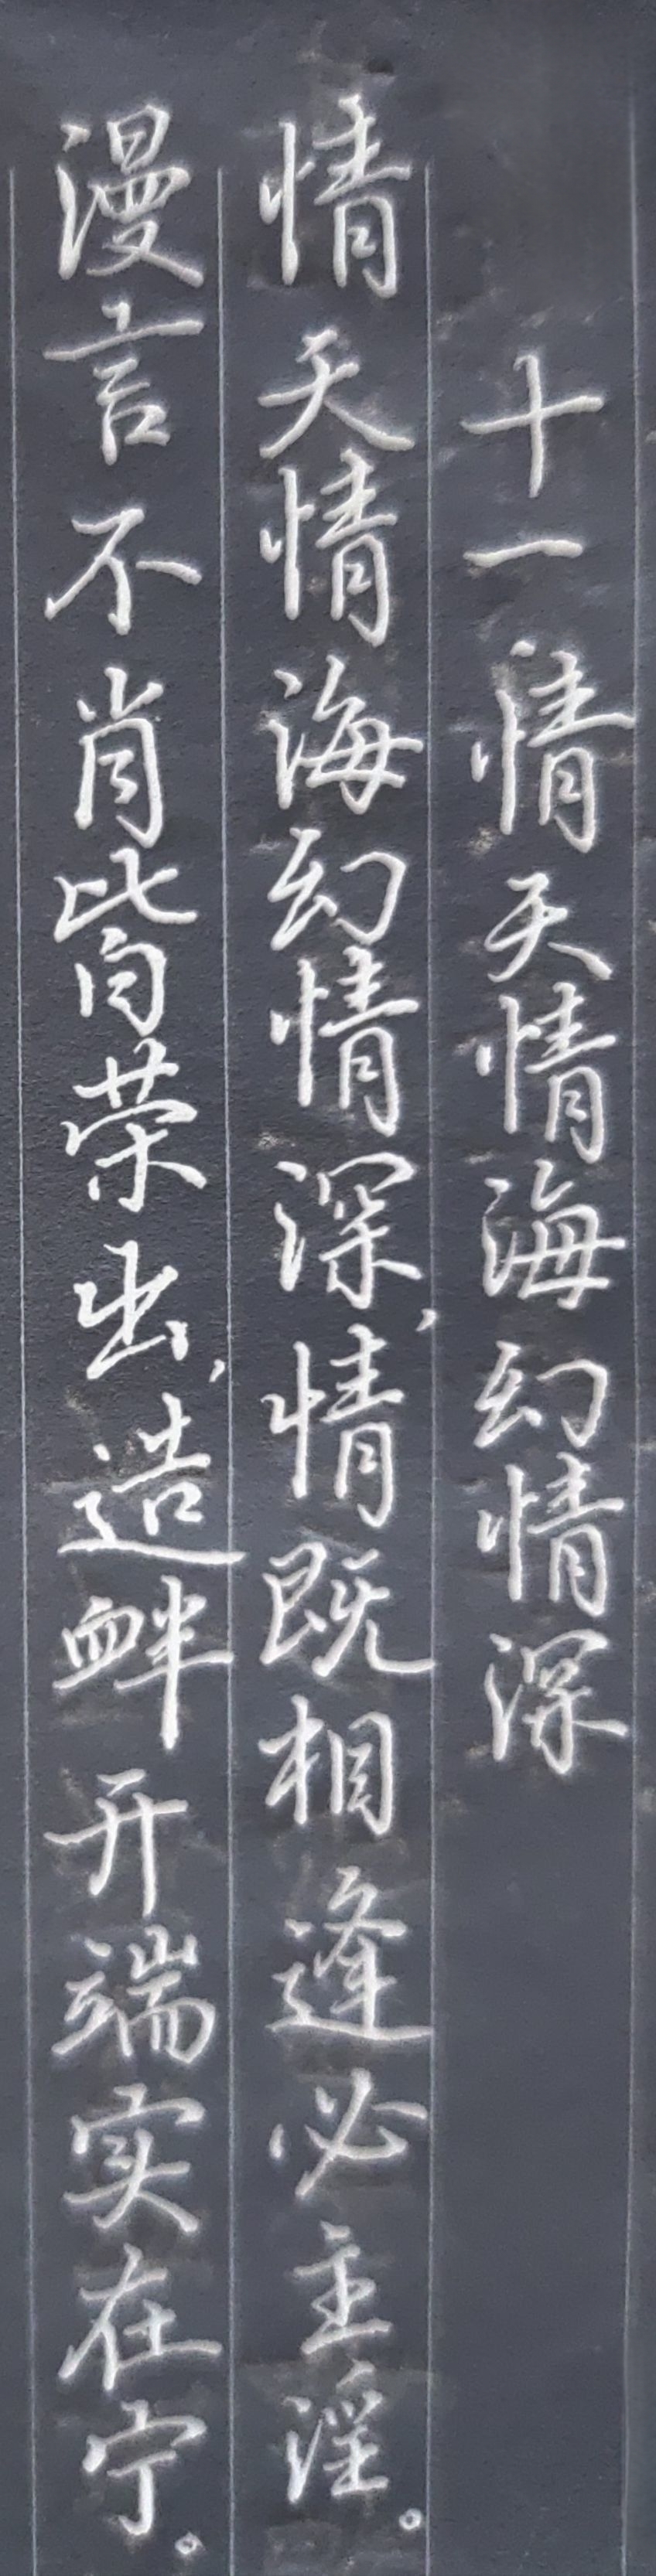 十一情天情海幻情深
情天情海幻情深,情既相逢必主淫。
漫言不肖皆荣出,造衅开端实在宁。